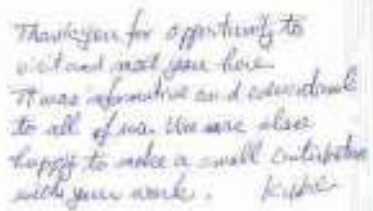 Thank you for opportunity to
visit and meet you here.
It was informative and educational
to all of us. We are also
happy to make a small contribution
with your work.